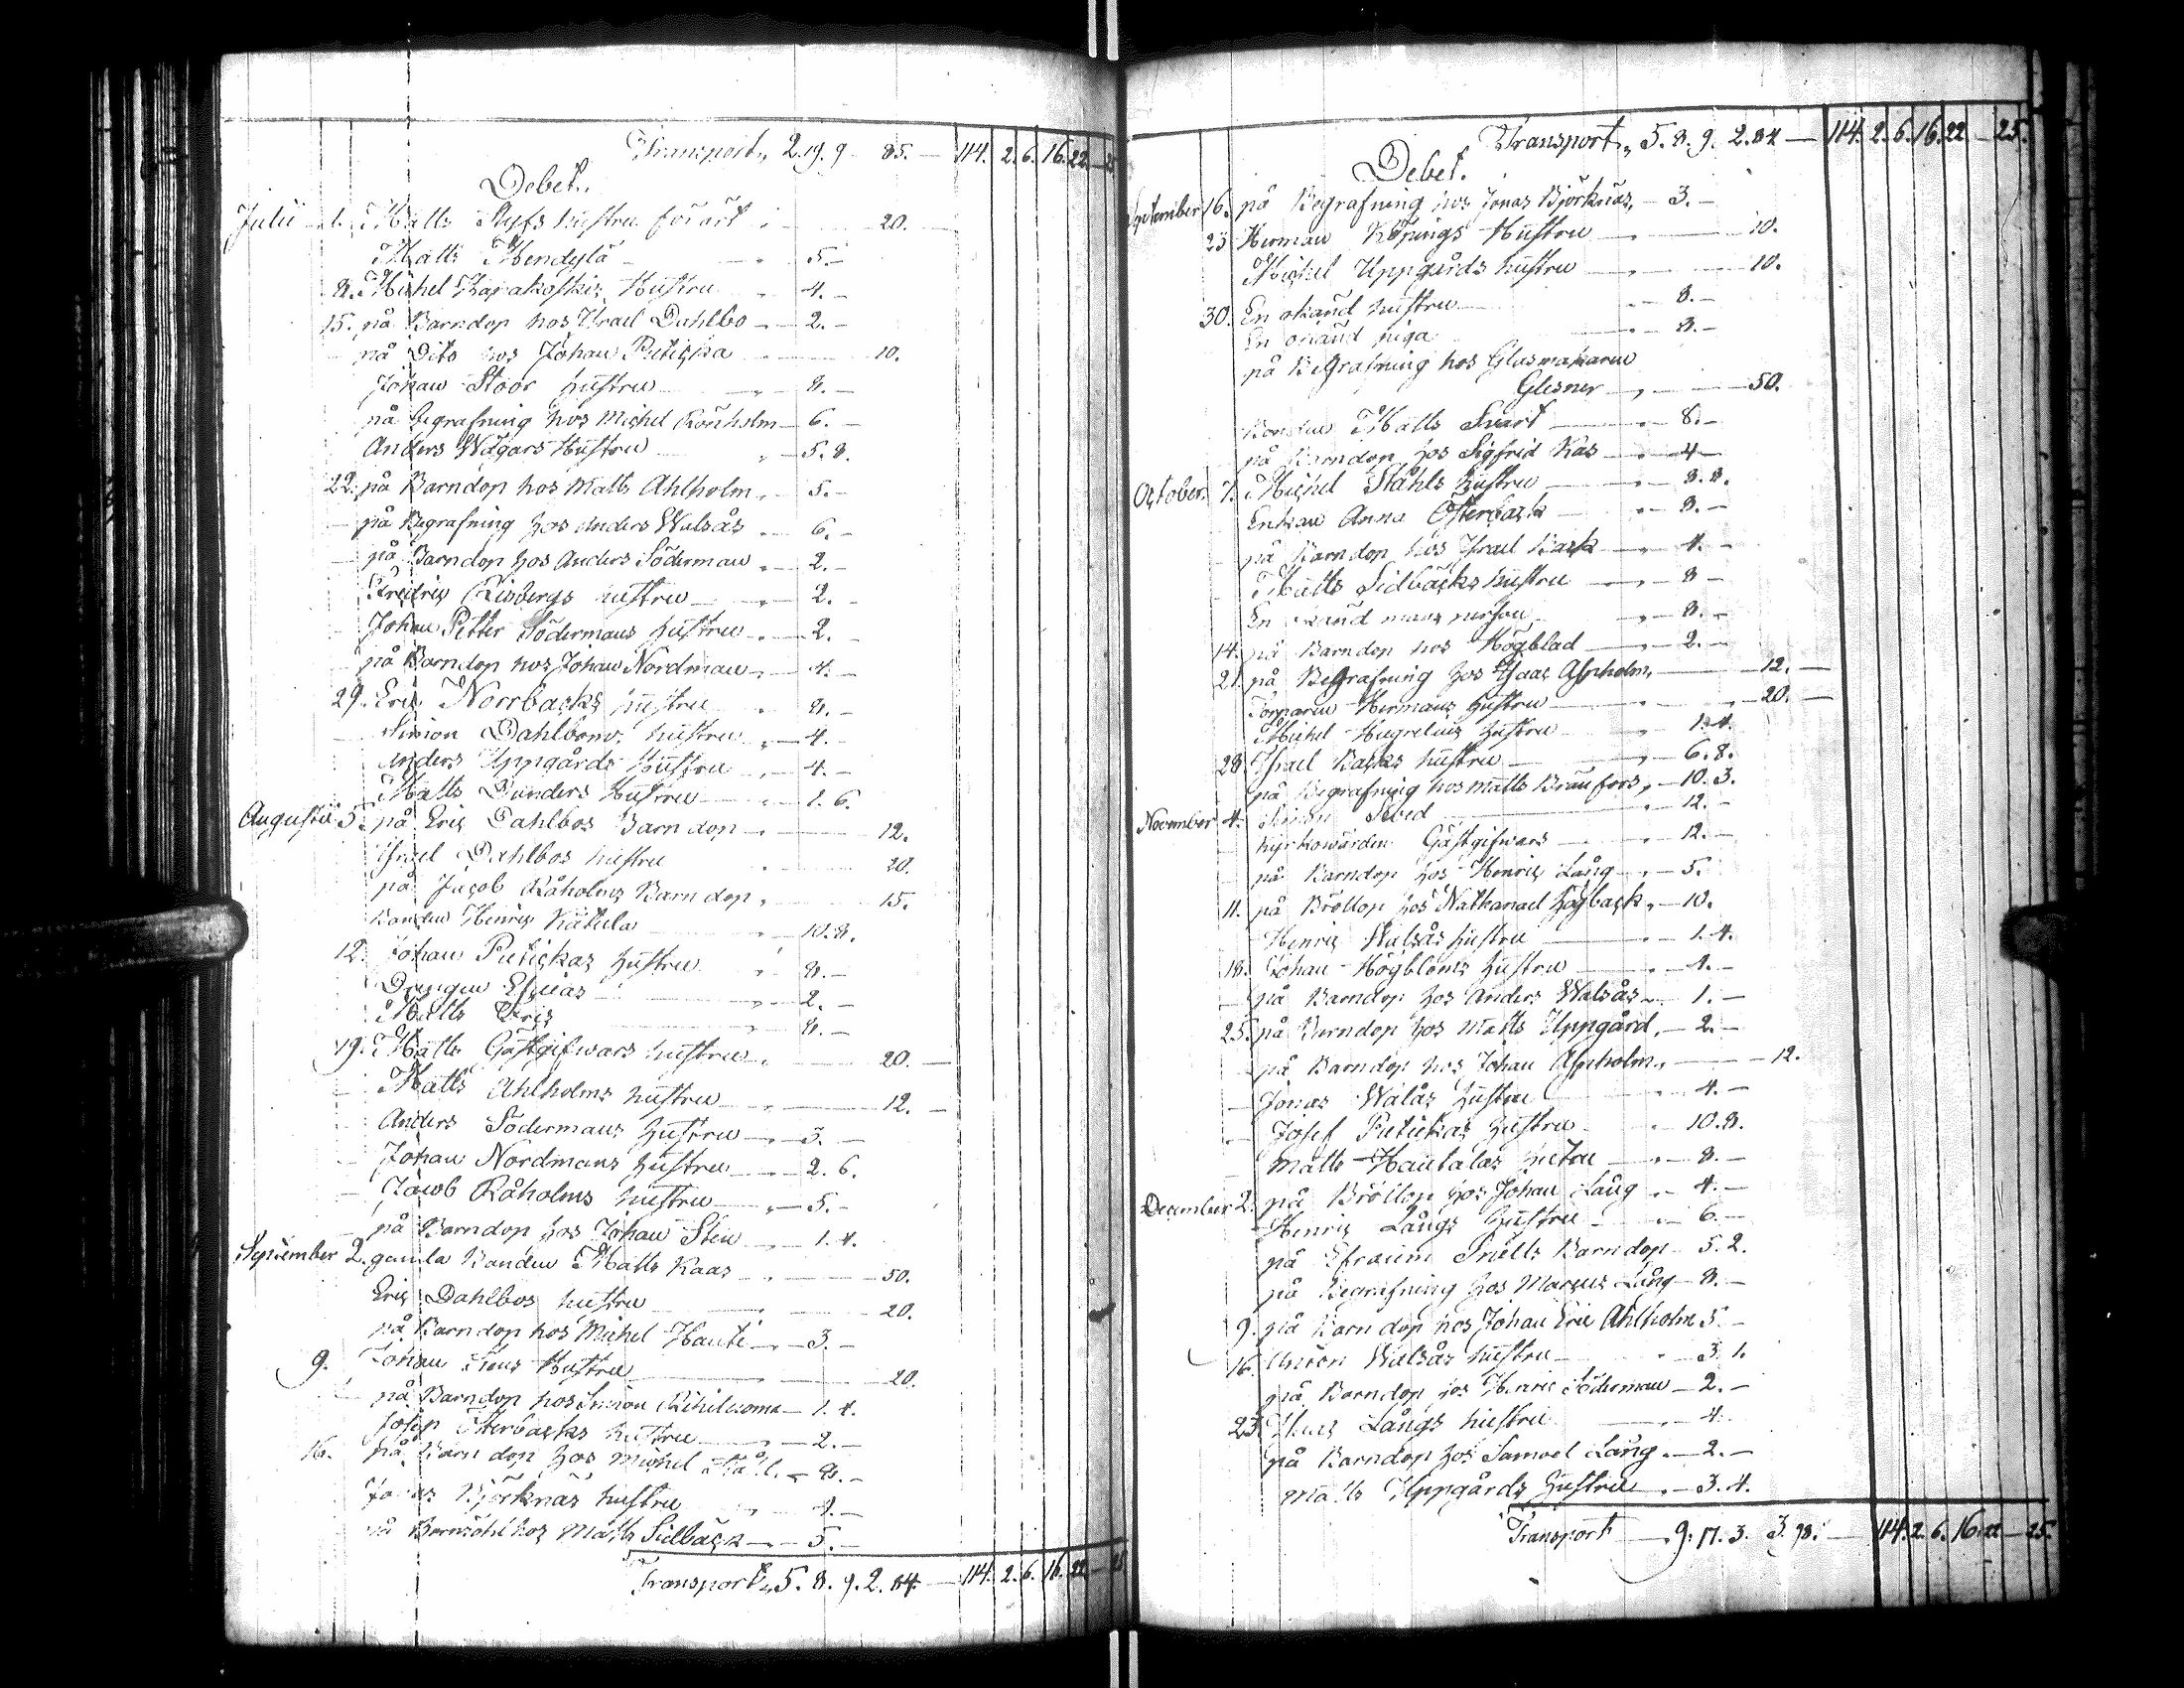 Transport „ 2. 19. 9 — 85. — 114. 2. 6. 16. 22 —
Debet.
Julii 1. Matts Slyfs hustru för årt 20.
Matts Mendylä 5. —
8. Michel Karakoskis Hustru 4. —
15. på Barndop hos Israel Dahlbo 2. —
på Dito hos Johan Pietiska 10.
Johan Stoor hustru 8. —
på Begrafning hos Michel Rönholm 6. —
Anders Wägars Hustru 5. 8.
22. på Barndop hos Matts Ahlholm 5. —
på Begrafning hos Anders Walsås 6. —
på Barndop hos Anders Söderman 2. —
Risbergs hustru 2. —
Johan Petter Södermans hustru 2. —
på Barndop hos Johan Nordman 4. —
29. Eric Norrbacks hustru 8. —
Simon Dahlboms hustru 4. —
Anders Uppgårds Hustru 4. —
Matts Dunders Hustru 1. 6.
Augustii 5. på Eric Dahlbos Barndop 12.
Israel Dahlbos hustru 20.
på Jacob Råholms Barndop 15.
Bonden Henric Kätula 10. 8.
12. Johan Pietickas hustru 8. —
Drengen Esaias 2. —
Matts Eric 8. —
19. Matts Gästgifwars hustru 20. —
Matts Ahlholms hustru 12. —
Anders Södermans hustru 3. —
Johan Nordmans hustru 2. 6.
Jacob Råholms hustru 5. —
på Barndop hos Johan Sten 1. 4.
September 2. gamla Bonden Matts Kaas 50.
Eric Dahlbos hustru 20.
på Barndop hos Michel Hauti 3. —
9. Johan Stens Hustru 20.
på Barndop hos Simon 1. 4.
Josep Österbacks hustru 2. —
16. på Barndop hos Michel Ståhl 8. —
Jonas Björknäs hustru 4. —
på hos Matts Sidbäck 5. —
Transport „ 5. 8. 9. 2. 84. — 114. 2. 6. 16. 22 —
Transport „ 5. 8. 9. 2. 84 — 114. 2. 6. 16. 22 — 25.
Debet.
September 16. på Begrafning hos Jonas Björknäs 3. —
23 Herman Köpings Hustru 10.
Michel Uppgårds hustru 10.
30. En okänd hustru 8. —
En okänd piga 8. —
på Begrafning hos Glasmakaren
Glesner 50.
Bonden Matts Svart 8. —
på Barndop hos Sigfrid Kas 4 —
October 7. Michel Ståhls hustru 8. 8.
Enkan Anna Österback 8. —
på Barndop hos Israel Back 4. —
Matts Sidbäcks hustru 8 —
En okänd mans person 8. —
14. på Barndop hos Högblad 2. —
21. på Begrafning hos Isaac Aspholm 12. —
Torparen Hermans hustru 20. —
Michel hustru 1. 4.
28. Israel Backs hustru 6. 8.
på Begrafning hos Matts Brunfors 10. 3.
November 4. Simon 12. —
kyrkowärden Gästgifwars 12. —
på Barndop hos Henric Lång 5.
11. på Bröllop hos Nathanael Högback 10.
Henric Walsås hustru 1. 4.
18. Johan Högbloms hustru 4. —
på Barndop hos Anders Walsås 1. —
25. på Barndop hos Matts Uppgård 2. —
på Barndop hos Johan Aspholm 12.
Jonas Walås hustru 4. —
Josef Pietickas hustru 10. 8.
Matts Hautalas hustru 8. —
December 2. på Bröllop hos Johan Lång 4. —
Henric Långs hustru 6. —
på Efraim Snälls Barndop 5. 2.
på Begrafning hos Marcus Lång 8. —
9. på Barndop hos Johan Eric Ahlholm 5. —
16. Walsås hustru 3. 1.
på Barndop hos Henric Söderman 2. —
23. Långs hustru 4.
på Barndop hos Samuel Lång 2. —
Matts Uppgårds hustru 3. 4.
Transport — 9. 17. 3. 3. 98. — 114. 2. 6. 16. 22 — 25.